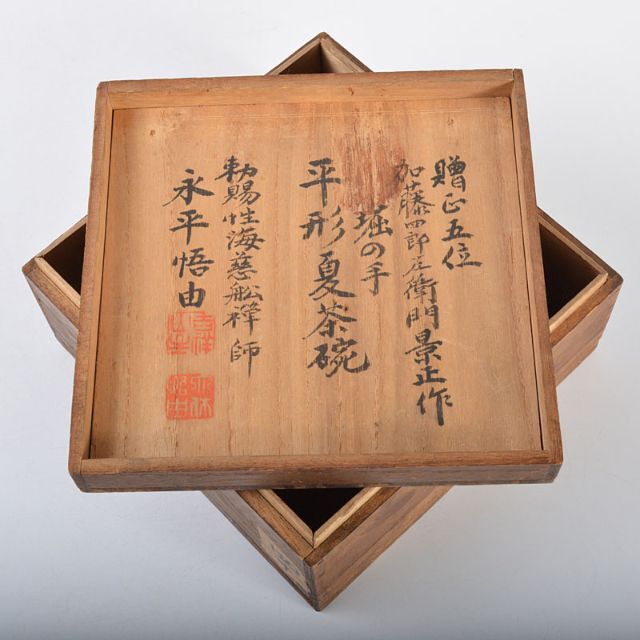 贈正五位
加藤四郎左衛門景正作
堀の手
平形夏茶碗
勅賜性海慈舩禅師
永平悟由